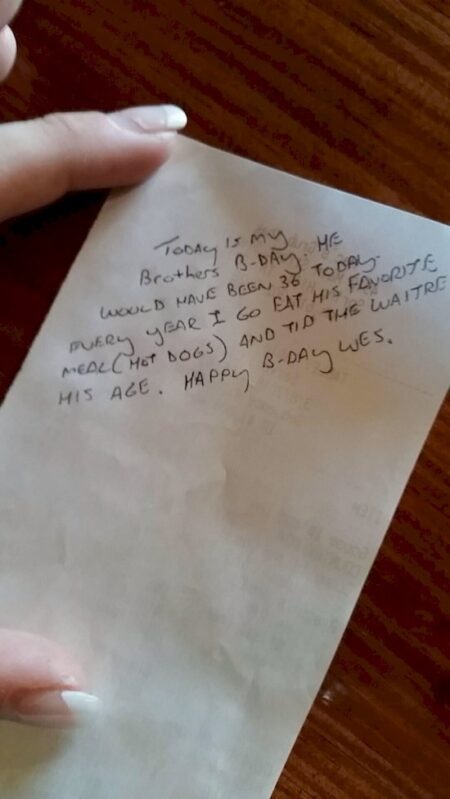 TODAY IS MY
BROTHERS B-DAY. HE
WOULD HAVE BEEN 36 TODAY.
EVERY YEAR I GO EAT HIS FAVORITE
MEAL (HOT DOGS) AND TID THE WAITRE
HIS AGE. HAPPY B-DAY WES.